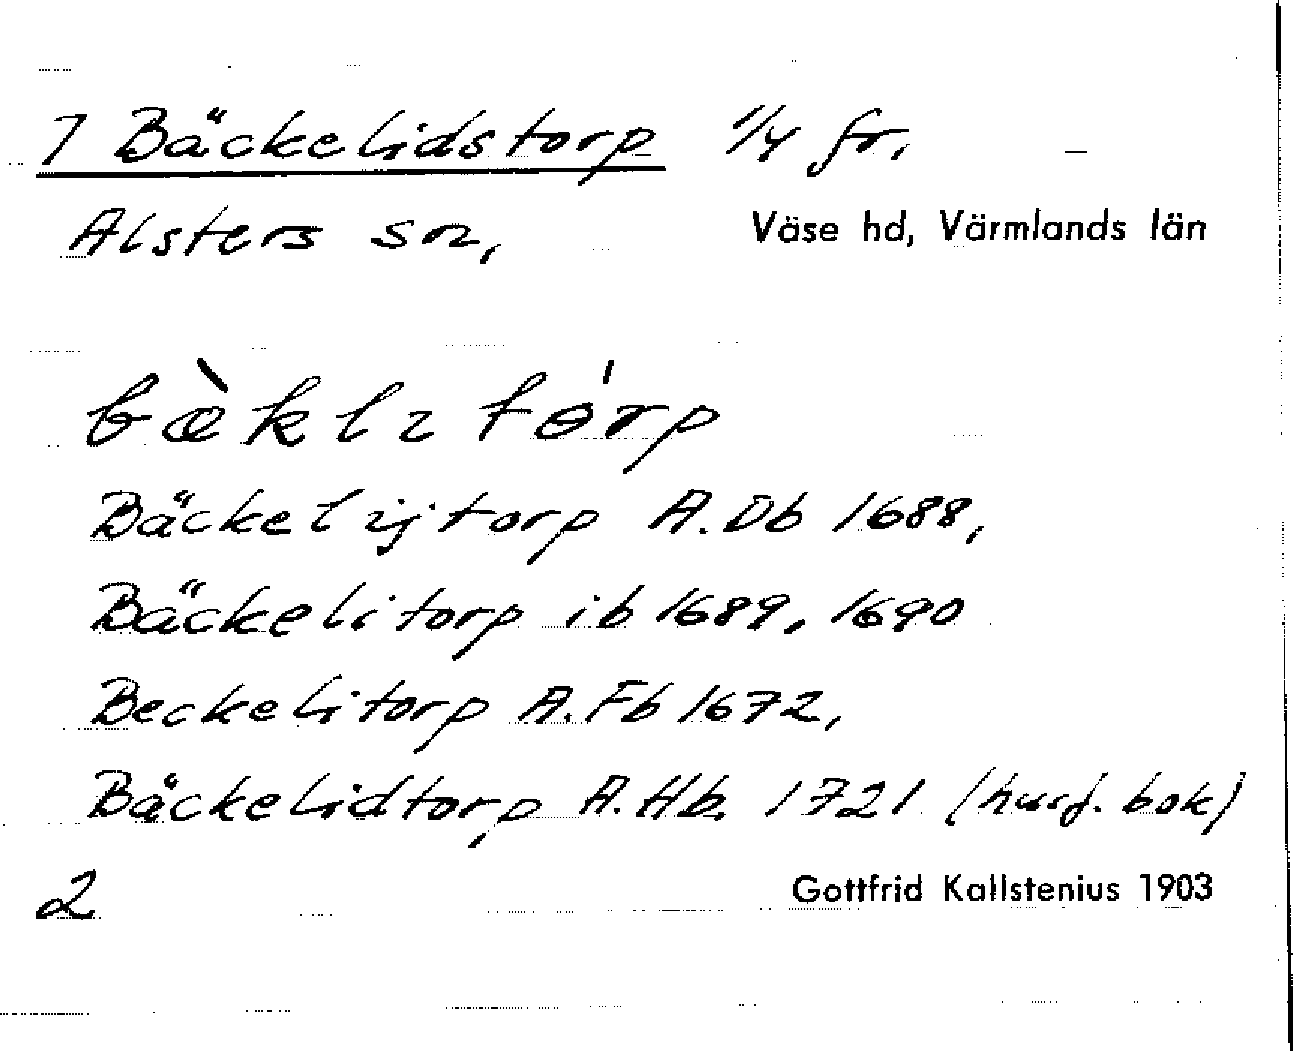 7 Bäckelidstorp 1/4 fr.
Alsters sn, Väse hd, Värmlands län
bæ̀klɩtɵ́rp
Bäckelijtorp A. Db 1688,
Bäckelitorp ib 1689, 1690
Beckelitorp A. Fb 1672,
Bäckelidtorp A. Hb. 1721 (husf. bok)
2 Gottfrid Kallstenius 1903